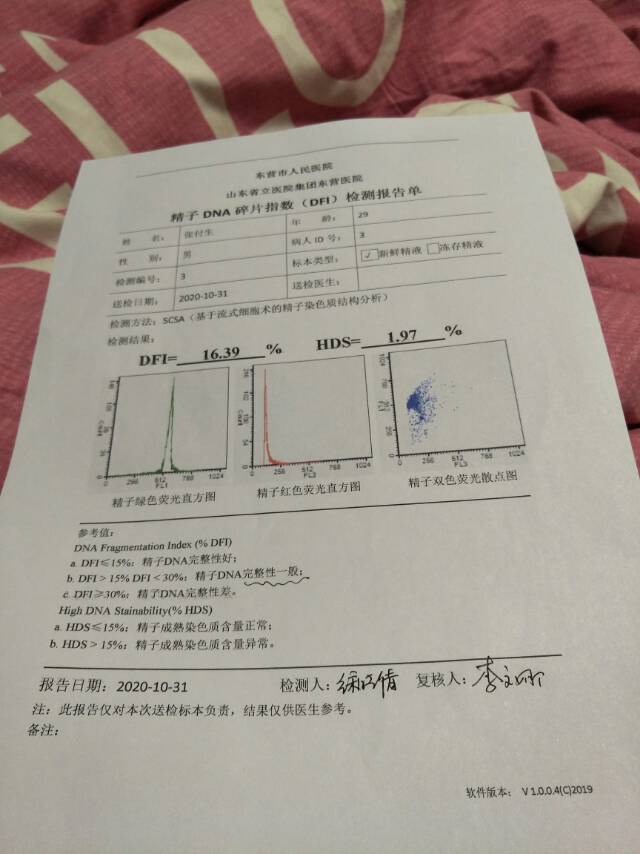 东营市人民医院
山东省立医院集团东营医院
精子 DNA 碎片指数（DFI）检测报告单
姓 名： 张付生 年 龄： 29
性 别： 男 病人 ID 号： 3
检测编号： 3 标本类型： ✓新鲜精液 冻存精液
送检日期： 2020-10-31 送检医生：
检测方法：SCSA（基于流式细胞术的精子染色质结构分析）
检测结果：
DFI= 16.39 % HDS= 1.97 %
0 256 512 768 1024
FL1
0 256 512 768 1024
FL3
0 256 512 768 1024
FL3
精子绿色荧光直方图 精子红色荧光直方图 精子双色荧光散点图
参考值：
DNA Fragmentation Index (% DFI)
a. DFI≤15%：精子DNA完整性好；
b. DFI > 15% DFI < 30%：精子DNA完整性一般；
c. DFI≥30%：精子DNA完整性差。
High DNA Stainability(% HDS)
a. HDS≤15%：精子成熟染色质含量正常；
b. HDS > 15%：精子成熟染色质含量异常。
报告日期：2020-10-31 检测人： 复核人：
注：此报告仅对本次送检标本负责，结果仅供医生参考。
备注：
软件版本： V 1.0.0.4(C)2019